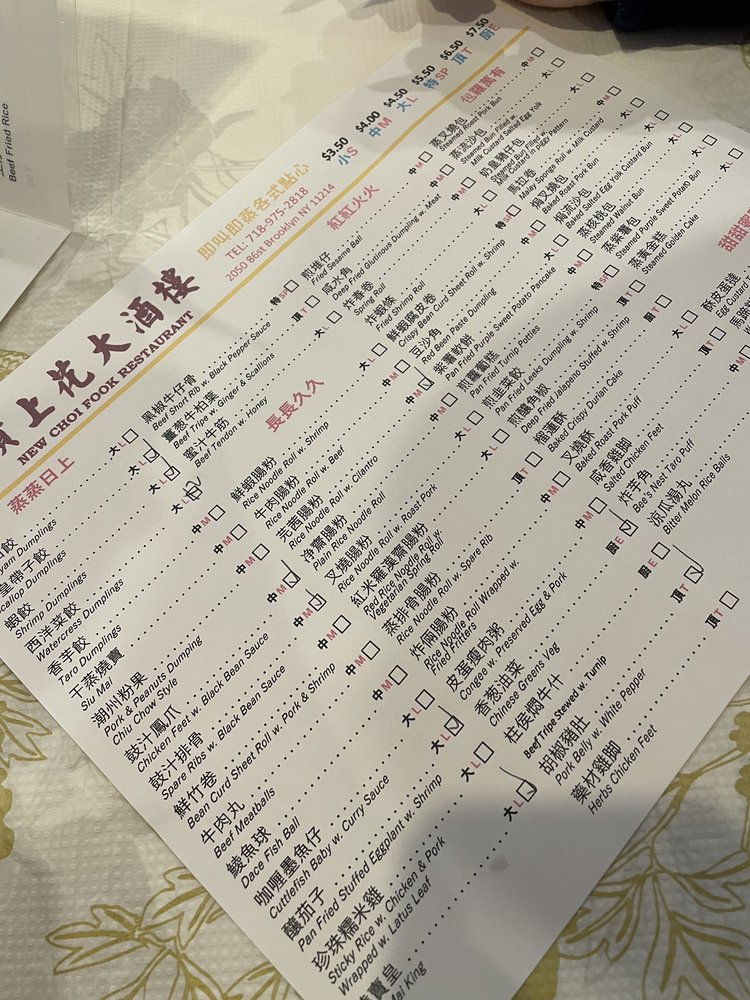 Beef Fried Rice
上花大酒樓
NEW CHOI FOOK RESTAURANT
即叫即蒸各式點心
TEL: 718-975-2818
2050 86st Brooklyn NY 11214
$3.50 $4.00 $4.50 $5.50 $6.50 $7.50
小S 中M 大L 特SP 頂T 厨E
蒸蒸日上
大L
Dumplings
大L
皇帶子餃
Scallop Dumplings
大L
蝦餃
Shrimp Dumplings
西洋菜餃
Watercress Dumplings
中M
香芋餃
Taro Dumplings
中M
干蒸燒賣
Siu Mai
中M
潮州粉果
Pork & Peanuts Dumping
Chiu Chow Style
中M
豉汁鳳爪
Chicken Feet w. Black Bean Sauce
中M
豉汁排骨
Spare Ribs w. Black Bean Sauce
中M
鮮竹卷
Bean Curd Sheet Roll w. Pork & Shrimp
中M
牛肉丸
Beef Meatballs
中M
鯪魚球
Dace Fish Ball
大L
咖喱墨魚仔
Cuttlefish Baby w. Curry Sauce
大L
釀茄子
Pan Fried Stuffed Eggplant w. Shrimp
大L
珍珠糯米雞
Sticky Rice w. Chicken & Pork
Wrapped w. Latus Leaf
大L
賣皇
Mai King
黑椒牛仔骨
Beef Short Rib w. Black Pepper Sauce
特SP
薑葱牛柏葉
Beef Tripe w. Ginger & Scallions
頂T
蜜汁牛筋
Beef Tendon w. Honey
大L
長長久久
鮮蝦腸粉
Rice Noodle Roll w. Shrimp
大L
牛肉腸粉
Rice Noodle Roll w. Beef
中M
芫茜腸粉
Rice Noodle Roll w. Cilantro
中M
净齋腸粉
Plain Rice Noodle Roll
叉燒腸粉
Rice Noodle Roll w. Roast Pork
大L
紅米羅漢齋腸粉
Red Rice Noodle Roll w.
Vegetarian Spring Roll
大L
蒸排骨腸粉
Rice Noodle Roll w. Spare Rib
頂T
炸兩腸粉
Rice Noodle Roll Wrapped w.
Fried Fritters
中M
皮蛋瘦肉粥
Congee w. Preserved Egg & Pork
中M
香葱油菜
Chinese Greens Veg
厨E
柱侯燜牛什
Beef Tripe Stewed w. Turnip
厨E
胡椒豬肚
Pork Belly w. White Pepper
頂T
藥材雞脚
Herbs Chicken Feet
頂T
紅紅火火
煎堆仔
Fried Sesame Ball
中M
咸水角
Deep Fried Glutinous Dumpling w. Meat
中M
炸春卷
Spring Roll
炸蝦條
Fried Shrimp Roll
鮮蝦腐皮卷
Crispy Bean Curd Sheet Roll w. Shrimp
豆沙角
Red Bean Paste Dumpling
紫薯軟餅
Pan Fried Purple Sweet Potato Pancake
煎蘿蔔糕
Pan Fried Turnip Potties
煎韭菜餃
Pan Fried Leeks Dumpling w. Shrimp
煎釀角椒
Deep Fried Jalapeno Stuffed w. Shrimp
榴連酥
Baked Crispy Durian Cake
叉燒酥
Baked Roast Pork Puff
咸香雞脚
Salted Chicken Feet
炸芋角
Bee's Nest Taro Puff
涼瓜湯丸
Bitter Melon Rice Balls
包羅萬有
蒸叉燒包
Steamed Roast Pork Bun
中M
蒸流沙包
Steamed Bun Filled w.
Milk Custard Salted Egg Yolk
大L
奶皇豬仔包
Steamed Bun Filled w.
Milk Custard in Piggy Pattern
馬拉卷
Malay Sponge Roll w. Milk Custard
焗叉燒包
Baked Roast Pork Bun
焗流沙包
Baked Salted Egg Yolk Custard Bun
蒸核桃包
Steamed Walnut Bun
蒸紫薯包
Steamed Purple Sweet Potato Bun
蒸黃金糕
Steamed Golden Cake
甜甜
酥皮蛋撻
Egg Custard